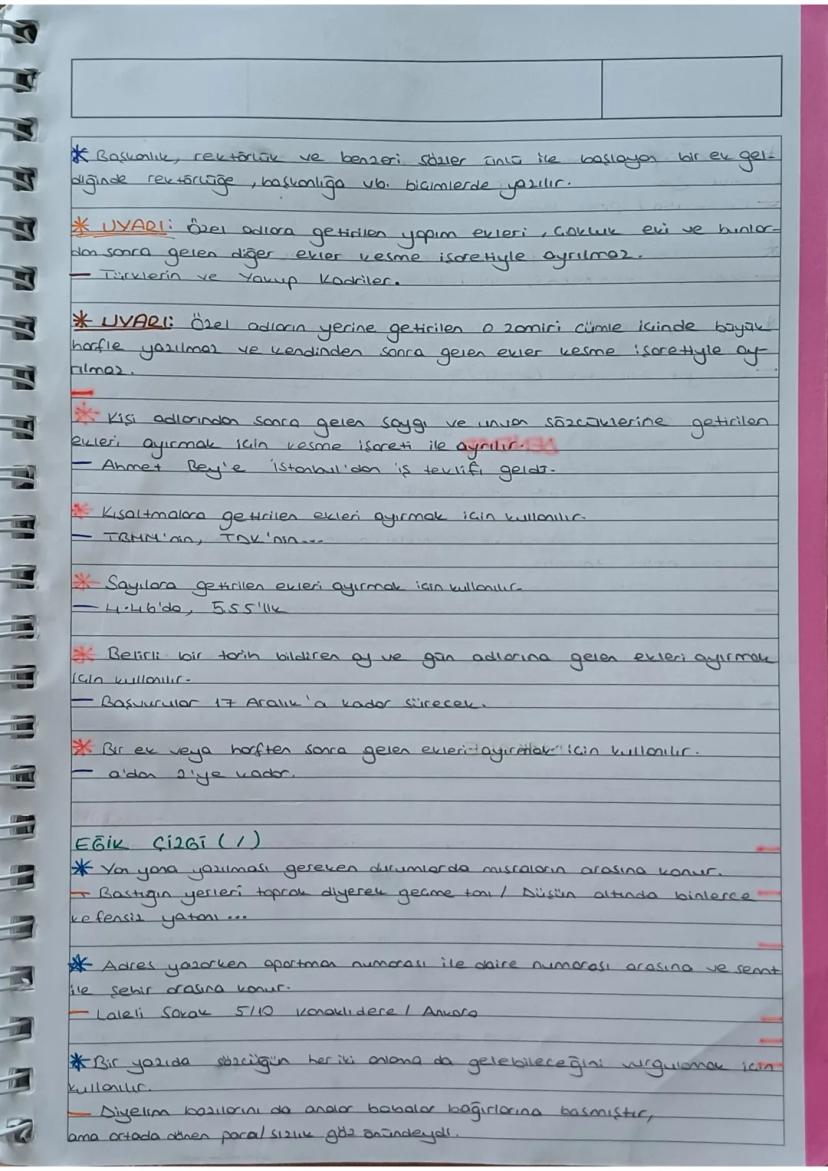 * Başkanlık, rektörlük ve benzeri sözler ünlü ile başlayan bir ek gel-
diğinde rektörlüğe, başkanlığa vb. biçimlerde yazılır.
* UYARI: Özel adlara getirilen yapım ekleri, çokluk eki ve bunlar-
dan sonra gelen diğer ekler kesme işaretiyle ayrılmaz.
— Türklerin ve Yakup Kadriler.
* UYARI: Özel adların yerine getirilen o zamiri cümle içinde büyük
harfle yazılmaz ve kendinden sonra gelen ekler kesme işaretiyle ay-
rılmaz.
* Kişi adlarından sonra gelen saygı ve unvan sözcüklerine getirilen
ekleri ayırmak için kesme işareti ile ayrılır.
— Ahmet Bey'e İstanbul'dan iş teklifi geldi.
* Kısaltmalara getirilen ekleri ayırmak için kullanılır.
— TBMM'nin, TDK'nın...
* Sayılara getirilen ekleri ayırmak için kullanılır.
— 4.46'da, 555'lik
* Belirli bir tarih bildiren ay ve gün adlarına gelen ekleri ayırmak
için kullanılır.
— Başvurular 17 Aralık'a kadar sürecek.
* Bir ek veya harften sonra gelen ekleri ayırmak için kullanılır.
— a'dan z'ye kadar.
EĞİK ÇİZGİ (/)
* Yan yana yazılması gereken durumlarda mısraların arasına konur.
— Bastığın yerleri toprak diyerek geçme tanı / Düşün altında binlerce
kefensiz yatanı...
* Adres yazarken apartman numarası ile daire numarası arasına ve semt
ile şehir arasına konur.
— Laleli Sokak 5/10 Konaklıdere / Ankara
* Bir yazıda sözcüğün her iki anlama da gelebileceğini vurgulamak için
kullanılır.
— Diyelim bazılarını da analar babalar bağırlarına basmıştır,
ama ortada dönen para/sızlık göz önündeydi.